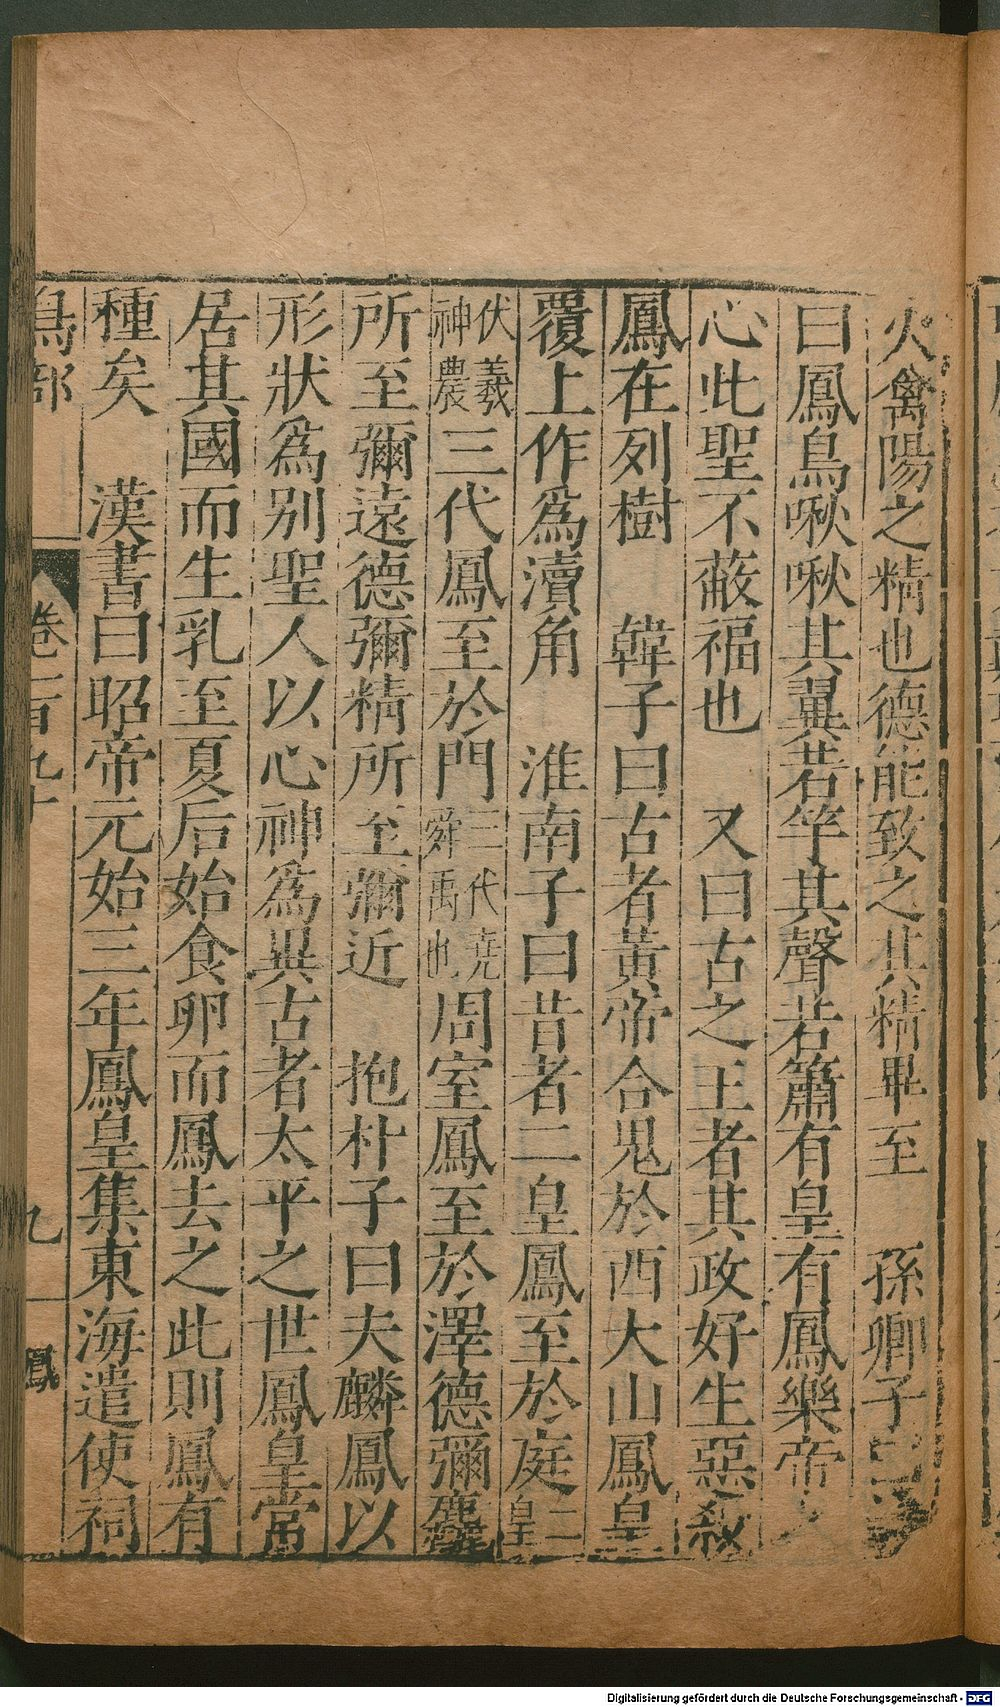 火禽陽之精也德能致之其精畢至　孫卿子
曰鳳鳥啾啾其翼若竿其聲若簫有皇有鳳樂帝
心此聖不蔽福也　又曰古之王者其政好生惡殺
鳳在列樹　韓子曰古者黃帝合鬼於西大山鳳皇
覆上作爲瀆角　淮南子曰昔者二皇鳳至於庭二皇
伏羲神農三代鳳至於門三代堯舜禹也周室鳳至於澤德彌麤
所至彌遠德彌精所至彌近　抱朴子曰夫麟鳳以
形狀爲別聖人以心神爲異古者太平之世鳳皇常
居其國而生乳至夏后始食卵而鳳去之此則鳳有
種矣　漢書曰昭帝元始三年鳳皇集東海遣使祠
鳥部　卷一百九十　九　鳳
Digitalisierung gefördert durch die Deutsche Forschungsgemeinschaft - DFG